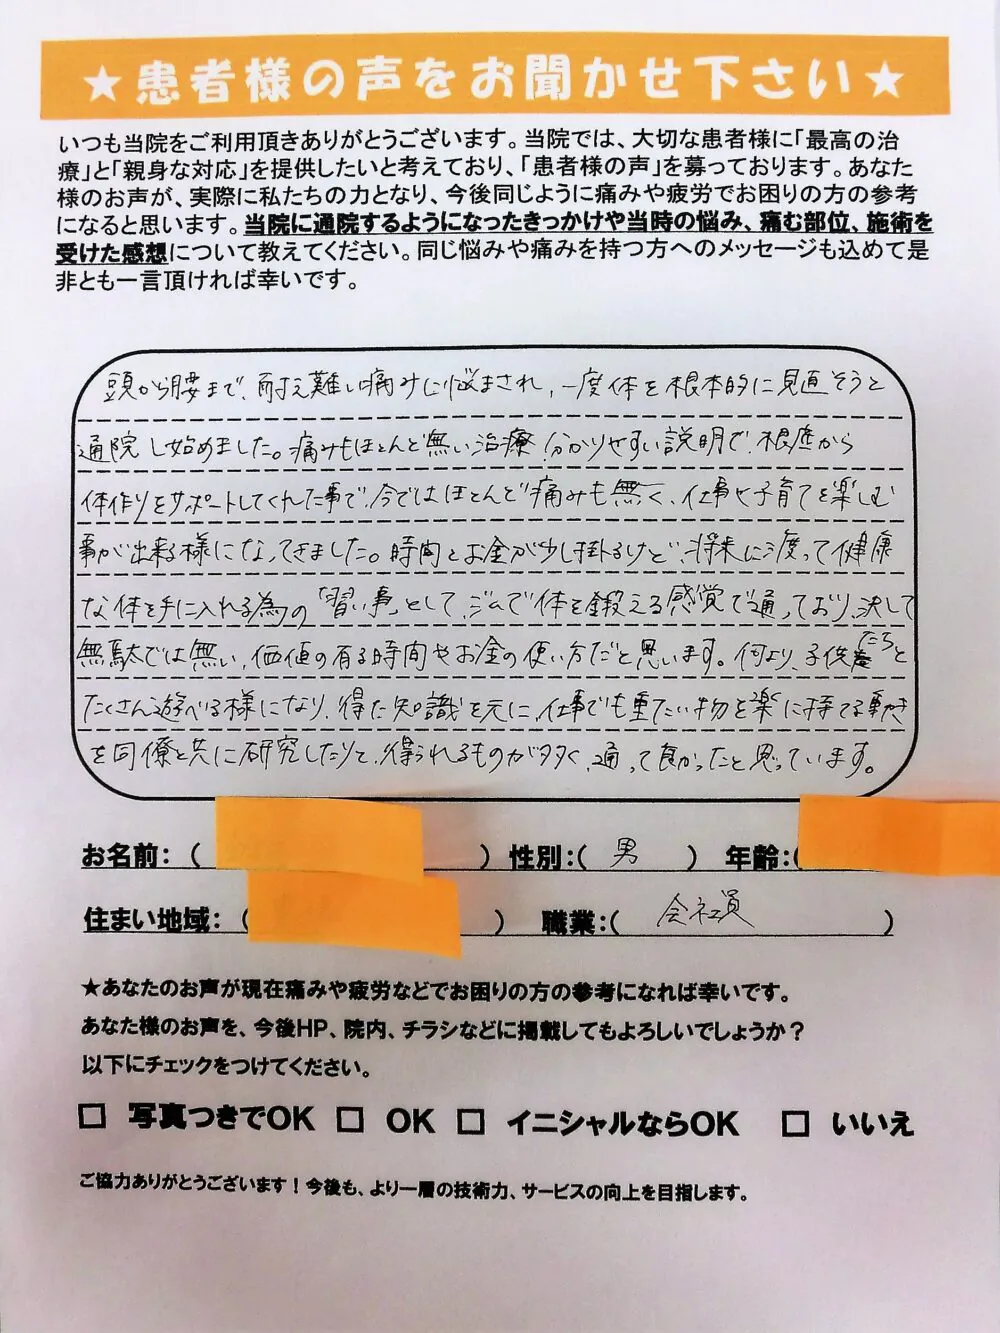 ★患者様の声をお聞かせ下さい★
いつも当院をご利用頂きありがとうございます。当院では、大切な患者様に「最高の治
療」と「親身な対応」を提供したいと考えており、「患者様の声」を募っております。あなた
様のお声が、実際に私たちの力となり、今後同じように痛みや疲労でお困りの方の参考
になると思います。当院に通院するようになったきっかけや当時の悩み、痛む部位、施術を
受けた感想について教えてください。同じ悩みや痛みを持つ方へのメッセージも込めて是
非とも一言頂ければ幸いです。
頭から腰まで、耐え難い痛みに悩まされ、一度体を根本的に見直そうと
通院し始めました。痛みもほとんど無い治療、分かりやすい説明で、根底から
体作りをサポートしてくれた事で、今ではほとんど痛みも無く、仕事や子育てを楽しむ
事が出来る様になってきました。時間とお金が少し掛るけど、将来に渡って健康
な体を手に入れる為の「習い事」として、ジムで体を鍛える感覚で通っており、決して
無駄では無い、価値の有る時間やお金の使い方だと思います。何より、子供達たちと
たくさん遊べる様になり、得た知識を元に、仕事でも重たい物を楽に持てる動き
を同僚と共に研究したりと、得られるものが多く、通って良かったと思っています。
お名前：（ ） 性別：（ 男 ） 年齢：（
住まい地域：（ ） 職業：（ 会社員 ）
★あなたのお声が現在痛みや疲労などでお困りの方の参考になれば幸いです。
あなた様のお声を、今後HP、院内、チラシなどに掲載してもよろしいでしょうか？
以下にチェックをつけてください。
□ 写真つきでOK □ OK □ イニシャルならOK □ いいえ
ご協力ありがとうございます！今後も、より一層の技術力、サービスの向上を目指します。